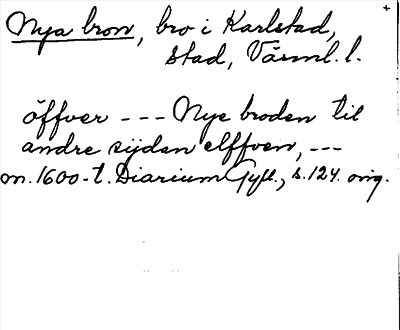 +
Nya bron, bro i Karlstad,
stad, Värml. l.
öffver --- Nye broden til
andre sijdan elffven, ---
m. 1600-t. Diarium Gyll., s. 124. orig.